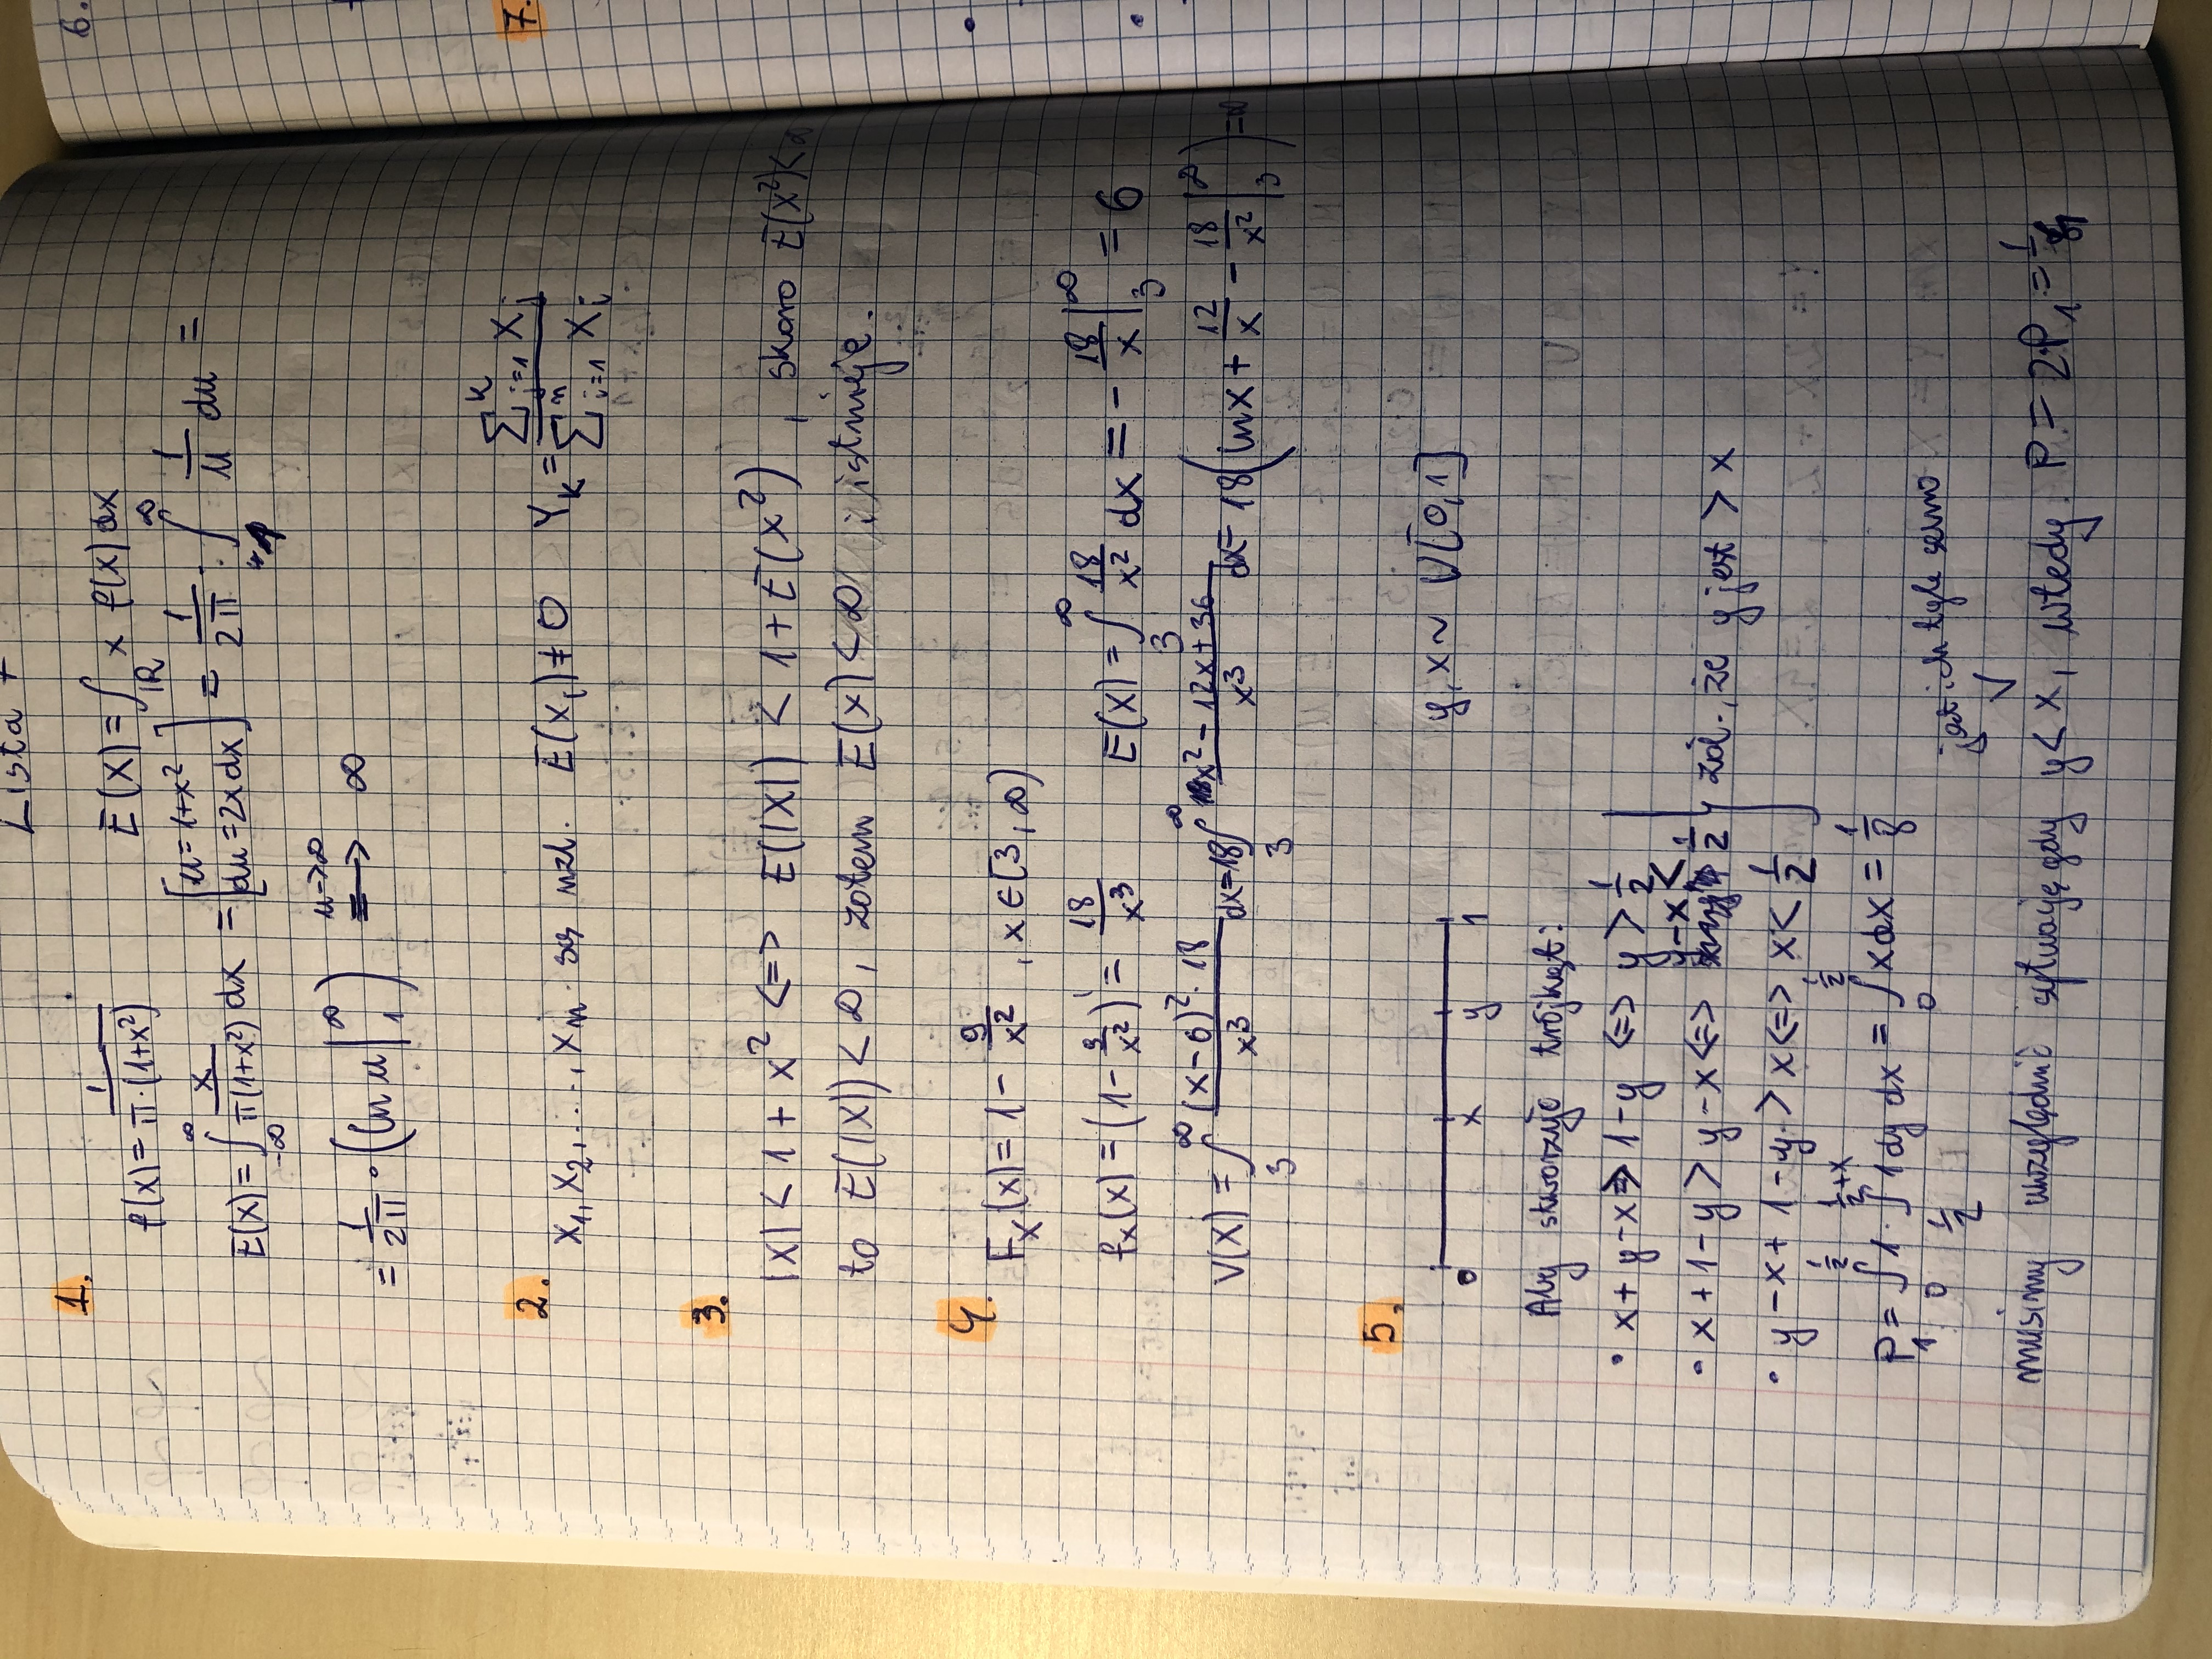 Lista 7
1.
f(x) = 1/(π·(1+x²))   E(X) = ∫_ℝ x f(x) dx
E(X) = ∫_{-∞}^{∞} x/(π(1+x²)) dx = [u = 1+x² du = 2x dx] = 1/(2π) · ∫_1^∞ 1/u du =
= 1/(2π) · (ln u |_1^∞) →^{u→∞} ∞
2. X₁, X₂, ..., Xₙ są nzl. E(X_i) ≠ 0   Y_k = (∑_{j=1}^k X_j)/(∑_{i=1}^n X_i)
3.
|X| < 1 + x² <=> E(|X|) < 1 + E(X²), skoro E(X²) < ∞
to E(|X|) < ∞, zatem E(X) < ∞ i istnieje.
4.
F_X(x) = 1 - 9/x², x ∈ [3, ∞)
f_X(x) = (1 - 9/x²)' = 18/x³   E(X) = ∫_3^∞ 18/x² dx = - 18/x |_3^∞ = 6
V(X) = ∫_3^∞ ((x-6)²·18)/x³ dx = 18 ∫_3^∞ (x² - 12x + 36)/x³ dx = 18(ln x + 12/x - 18/x² |_3^∞) = ∞
5.
0 x y 1   y, x ~ U[0,1]
Aby stworzyć trójkąt:
• x + y - x > 1 - y <=> y > 1/2
• x + 1 - y > y - x <=> y - x < 1/2 } zał., że y jest > x
• y - x + 1 - y > x <=> x < 1/2
P₁ = ∫_0^{1/2} 1 · ∫_{1/2}^{1/2+x} 1 dy dx = ∫_0^{1/2} x dx = 1/8
jest ich tyle samo
musimy uwzględnić sytuację gdy y < x, wtedy P = 2·P₁ = 1/4
6.
7.